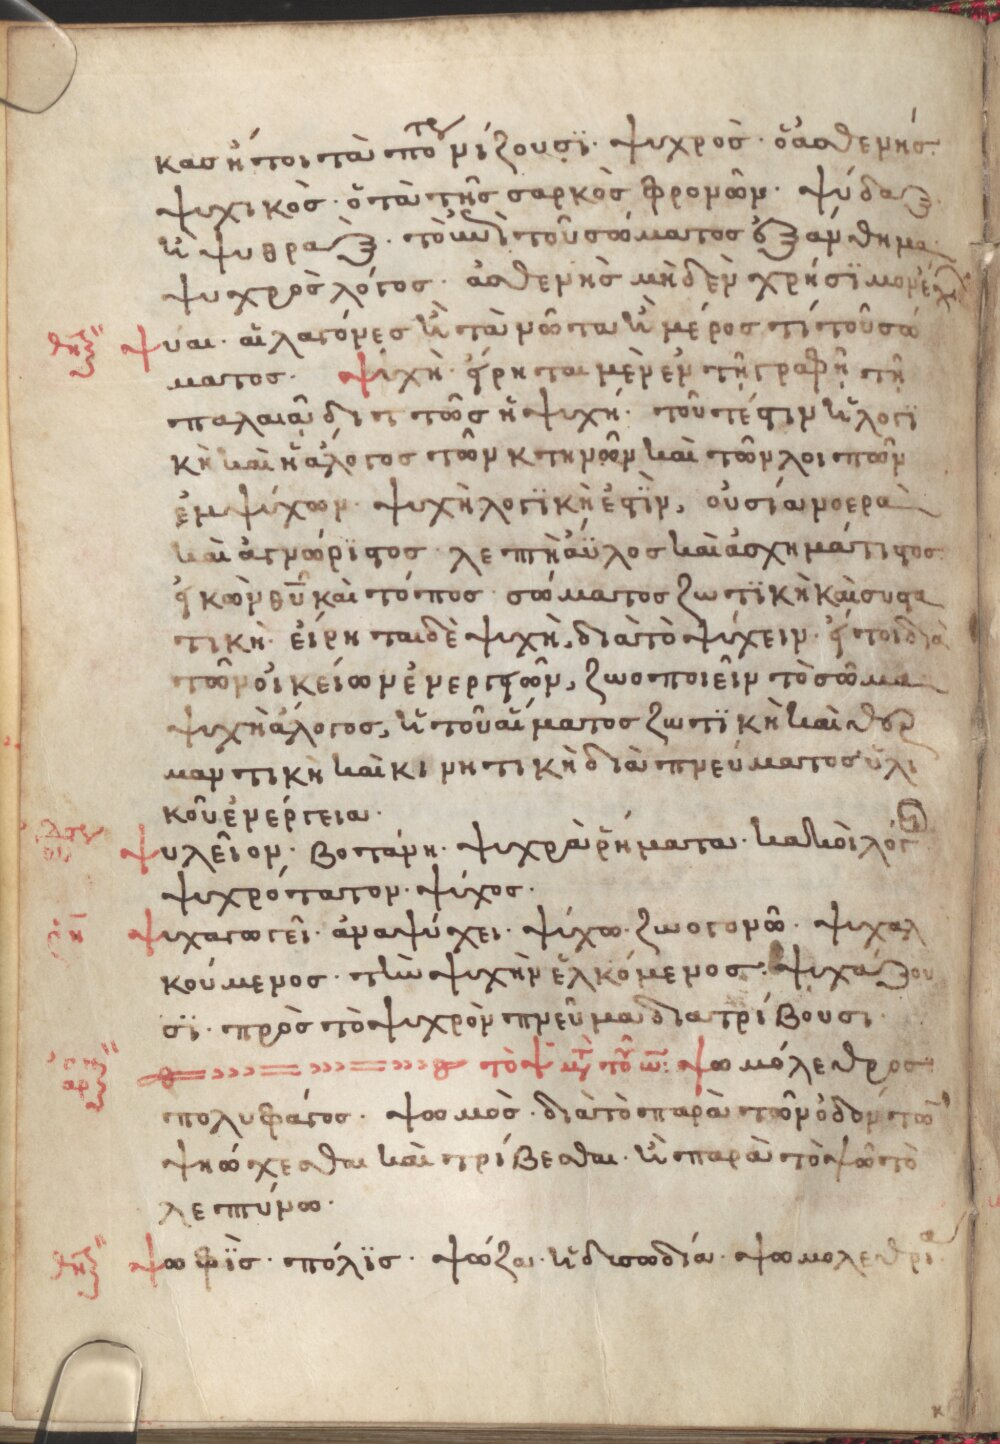 κας ἤτοι τὰ ποτνίζουσϊ· ψυχρὸς· ὁ ἀσθενής.
ψυχικὸς· ὁ τὰ τῆς σαρκὸς φρονῶν· ψύδαξ
ἢ ψυθραξ· τὸ ἐπὶ τοῦ σώματος ἐξάνθημα
ψυχρὸς λόγος· ἀσθενὴς μὴδὲν χρήσϊμον ἔχων
ψύαι· αἱ λαγόνες ἢ τὰ νῶτα ἢ μέρος τί τοῦ σώ
ματος· ψυχὴ· εἴρηται μὲν ἐν τῇ γραφῇ τῇ
παλαιᾷ διττῶς ἡ ψυχή· τοῦτέστιν ἡ λογϊ
κὴ καὶ ἡ ἄλογος τῶν κτηνῶν καὶ τῶν λοιπῶν
ἐμψύχων· ψυχὴ λογϊκὴ ἐστϊν, οὐσία νοερὰ
καὶ ἀγνώρϊστος· λεπτὴ ἀΰλος καὶ ἀσχημάτιστος
εἰκὼν θῦ καὶ τόπος· σώματος ζωτϊκὴ καὶ συστα
τικὴ· εἴρηται δὲ ψυχὴ, διὰ τὸ ψύχειν· ἤτοι διὰ
τῶν οἰκείων ἐνεργιστῶν, ζωοποιεῖν τὸ σῶμα
ψυχὴ ἄλογος, ἡ τοῦ αἵματος ζωτϊκὴ καὶ θερ
μαντικὴ καὶ κινητικὴ διὰ πνεύματος ὑλι
κοῦ ἐνέργεια·
ψυλεῖον· βοτάνη· ψυχρὰ ῥήματα· κακοὶ λόγοι
ψυχρότατον· ψύχος·
ψυχαγωγεῖ· ἀναψύχει· ψύχω· ζωογονῶ· ψυχαλ
κούμενος· τὴν ψυχὴν ἑλκόμενος· ψυχάζου
σϊ· πρὸς τὸ ψυχρὸν πνεῦμα διατρίβουσι·
τὸ ψ μετὰ τοῦ ω: ψωμόλεθρος
πολυφάγος· ψωμὸς· διὰ τὸ παρὰ τῶν ὀδόντων
ψηώχεσθαι καὶ τρίβεσθαι· ἢ παρὰ τὸ ψῶ τὸ
λεπτύνω·
ψωφϊς· πόλϊς· ψώζα· ἡ δυσωδία· ψωμολεθρία